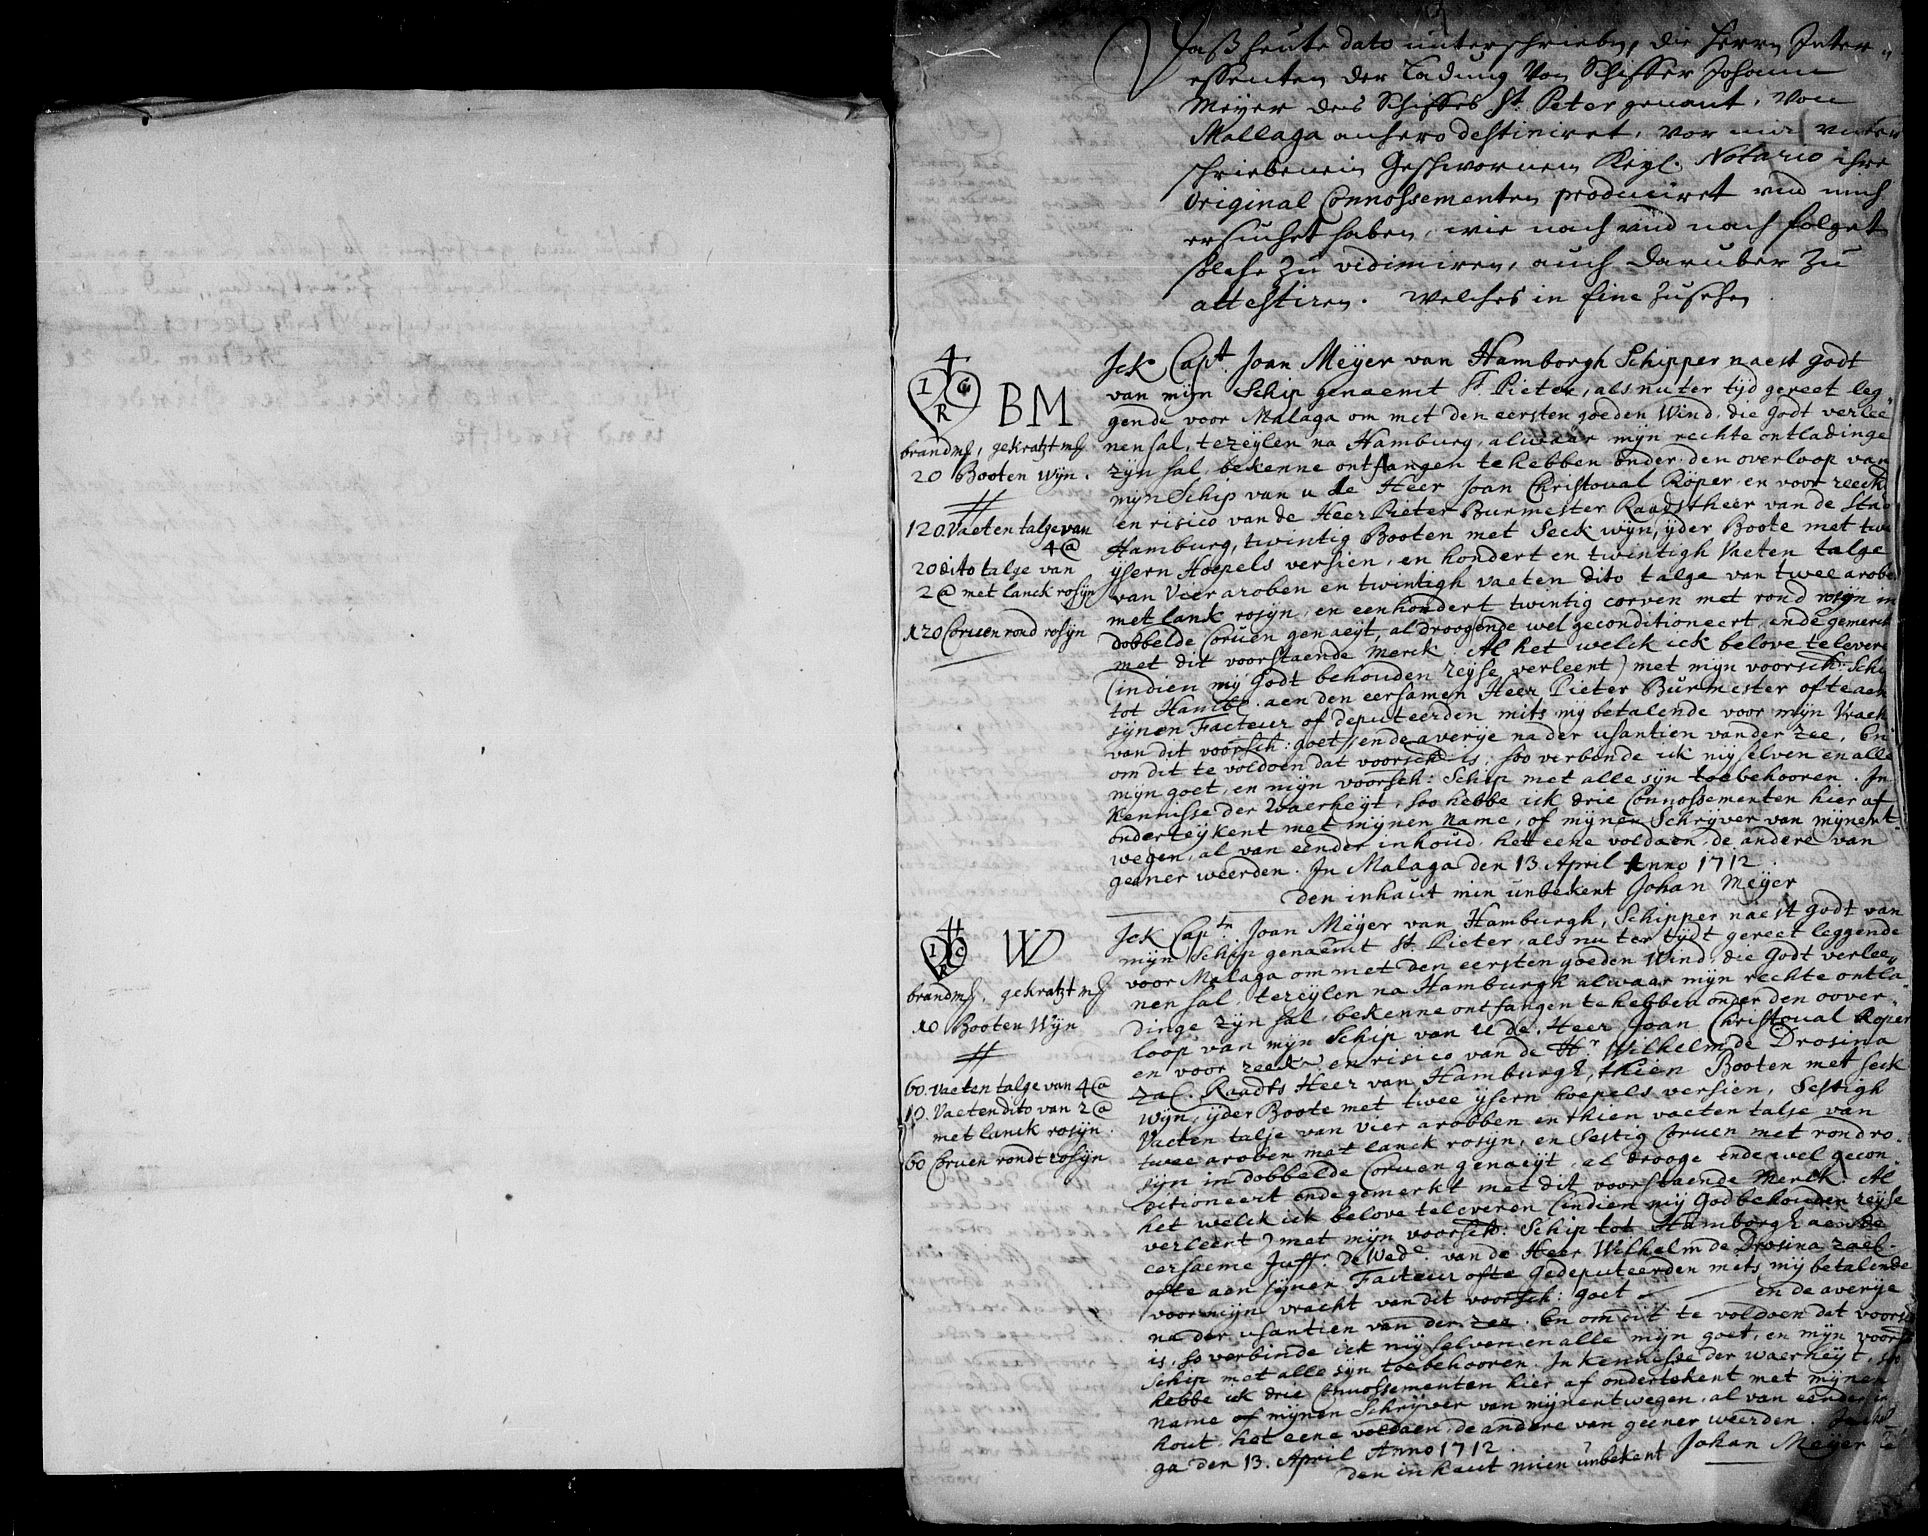 Daß heute dato unterschrieben, die Herrn Inter-
essenten der Ladung Von Schiffer Johann
Meyer des Schiffes St. Peter genant, Von
Mallaga anhero destiniret, vor mir unter
schriebenen Geschwornen Keyl. Notario ihre
Original Connossementen produciret und mich
ersuchet haben, wie nach und nach folget
solche zu vidimiren, auch daruber zu
attestiren. Welches in fine zusehen
4
I G
R
BM
brandm, gekratzt m
20 Booten Wijn.
120. Vaeten talge van
4@
20 dito talge van
2@ met lanck rosijn
120 Corven rond rosijn
Ick Capt. Joan Meÿer van Hamborgh Schipper naest Godt
van mijn Schip genaemt St. Pieter, als nu ter tijd gereet leg-
gende voor Malaga om met den eersten goeden Wind, die Godt verlee
nen sal, te zeylen na Hamburg, alwaar mijn rechte ontladinge
zijn sal, bekenne ontfangen te hebben onder den overloop van
mijn Schip van u de Heer Joan Christoval Roper, en voor reeck
en risico van de Heer Pieter Burmester Raadstheer van de Stad
Hamburg, twintig Booten met Seck wijn, ijder Boote met twe
ijsern Hoepels versien, en hondert en twintigh Vaeten talge
van Vier aroben en twintigh vaeten dito talge van twee arobe
met lank rosijn, en een hondert twintig corven met rond rosijn in
dobbelde Corven genaeijt, al droogende wel geconditioneert, ende gemerckt
met dit voorstaende merck. Al het welck ick belove te levere
(indien mij Godt behouden reyse verleent) met mijn voorsch: Schi
tot Hamb. aen den eersamen Heer Pieter Burmester ofte aen
sijnen Facteur of deputeerden mits mij betalende voor mijn Vrach
van dit voorsch: goet, ende averije na der usantien van der zee, En
om dit te voldoen dat voorsch is, soo verbinde ick mij selven en alle
mijn goet, en mijn voorsch: Schip met alle sijn toebehooren. In
Kennisse der Waerheyt, soo hebbe ick drie Connossementen hier af
onderteijkent met mijnen name, of mijnen Schrijver van mijnent
wegen, al van eender inhoud, het eene voldaen, de andere van
geener weerden. In Malaga den 13 April Anno 1712.
den inhaut min unbekent Johan Meÿer
I C
R
WD
brandm, gekratzt m
10 Booten Wijn
60. Vaeten talge van 4@
10. Vaeten dito van 2@
met lanck rosijn.
60 Corven rondt rosijn
Ick Captn Joan Meÿer van Hamburgh, Schipper naest Godt van
mijn Schip genaemt St. Pieter, als nu ter tijdt gereet leggende
voor Malaga om met den eersten goeden Wind, die Godt verlee-
nen sal, te zeylen na Hamburgh alwaar mijn rechte ontla-
dinge zijn sal, bekenne ontfangen te hebben onder den oover-
loop van mijn Schip van u de Heer Joan Christoval Roper
en voor reeck. en risico van de Hr. Wilhelm de Drosina
zal. Raadts Heer van Hamburgh, thien Booten met seck
wijn, ijder Boote met twee ijsern hoepels versien, Sestigh
Vaeten talje van vier arobben en thien vaeten talje van
twee aroben met lanck rosijn, en Sestig Corven met rond ro-
sijn in dobbelde Corven genaeijt, al drooge ende wel gecon-
ditioneert ende gemerkt met dit voorstaende Merck. Al
het welck ick belove te leveren (indien mij God behouden reijse
verleent) met mijn voorsch: Schip tot Hamborgh aen de
eersaeme Juffr. de Wede. van de Heer Wilhelm de Drosina zael.
ofte aen sijnen Facteur ofte Gedeputeerden mets mij betalende
voor mijn vracht van dit voorsch: goet — en de averije
na der usantien van der zee. En om dit te voldoen dat voorsch
is, so verbinde ick mij selven en alle mijn goet, en mijn voorsch
Schip met alle sijn toebehooren. In kennisse der waerheyt, soo
hebbe ick drie Connossementen hier af ondertekent met mijnen
name of mijnen Schrijver van mijnentwegen, al van eender in
hout, het eene voldaen, de andere van geener weerden. In Mal
ga den 13. April Anno 1712.
den inhaut mien unbekent Johan Meÿer